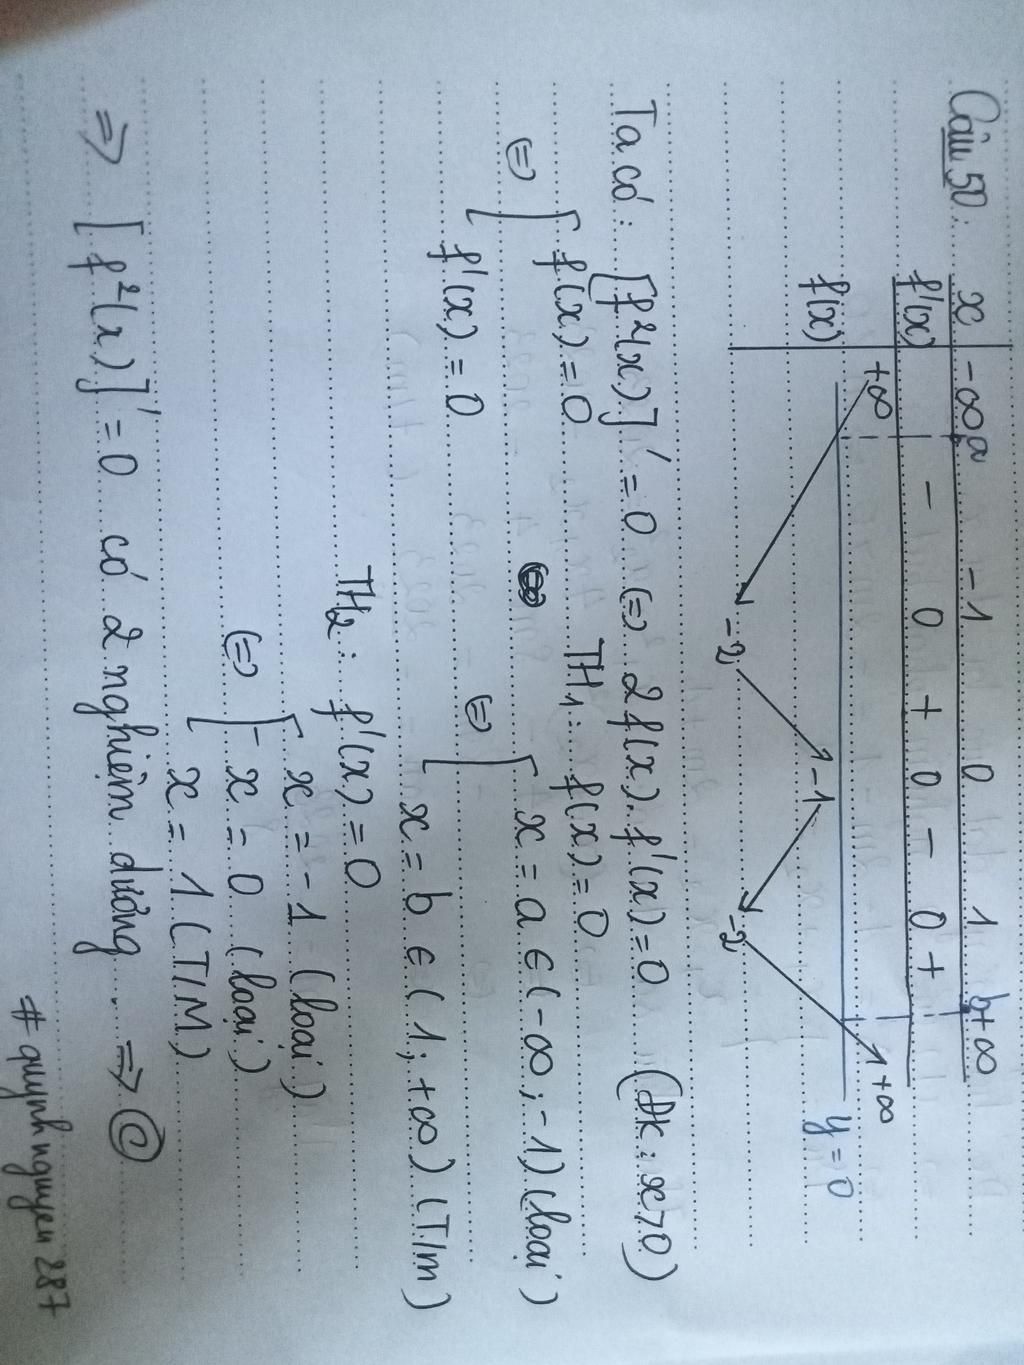 Câu 50:
x -∞ a -1 0 1 b +∞
f'(x) - 0 + 0 - 0 +
+∞ +∞
f(x) -1 y = 0
-2 -2
Ta có: [f²(x)]' = 0 (=) 2f(x).f'(x) = 0 (Đk: x>0)
(=) [ f(x) = 0 TH1: f(x) = 0
f'(x) = 0 (=) [ x = a ∈ (-∞; -1) (loại)
x = b ∈ (1; +∞) (T/m)
TH2: f'(x) = 0
(=) [ x = -1 (loại)
x = 0 (loại)
x = 1 (T/M)
=> [f²(x)]' = 0 có 2 nghiệm dương. => C
# quynhnguyen 287